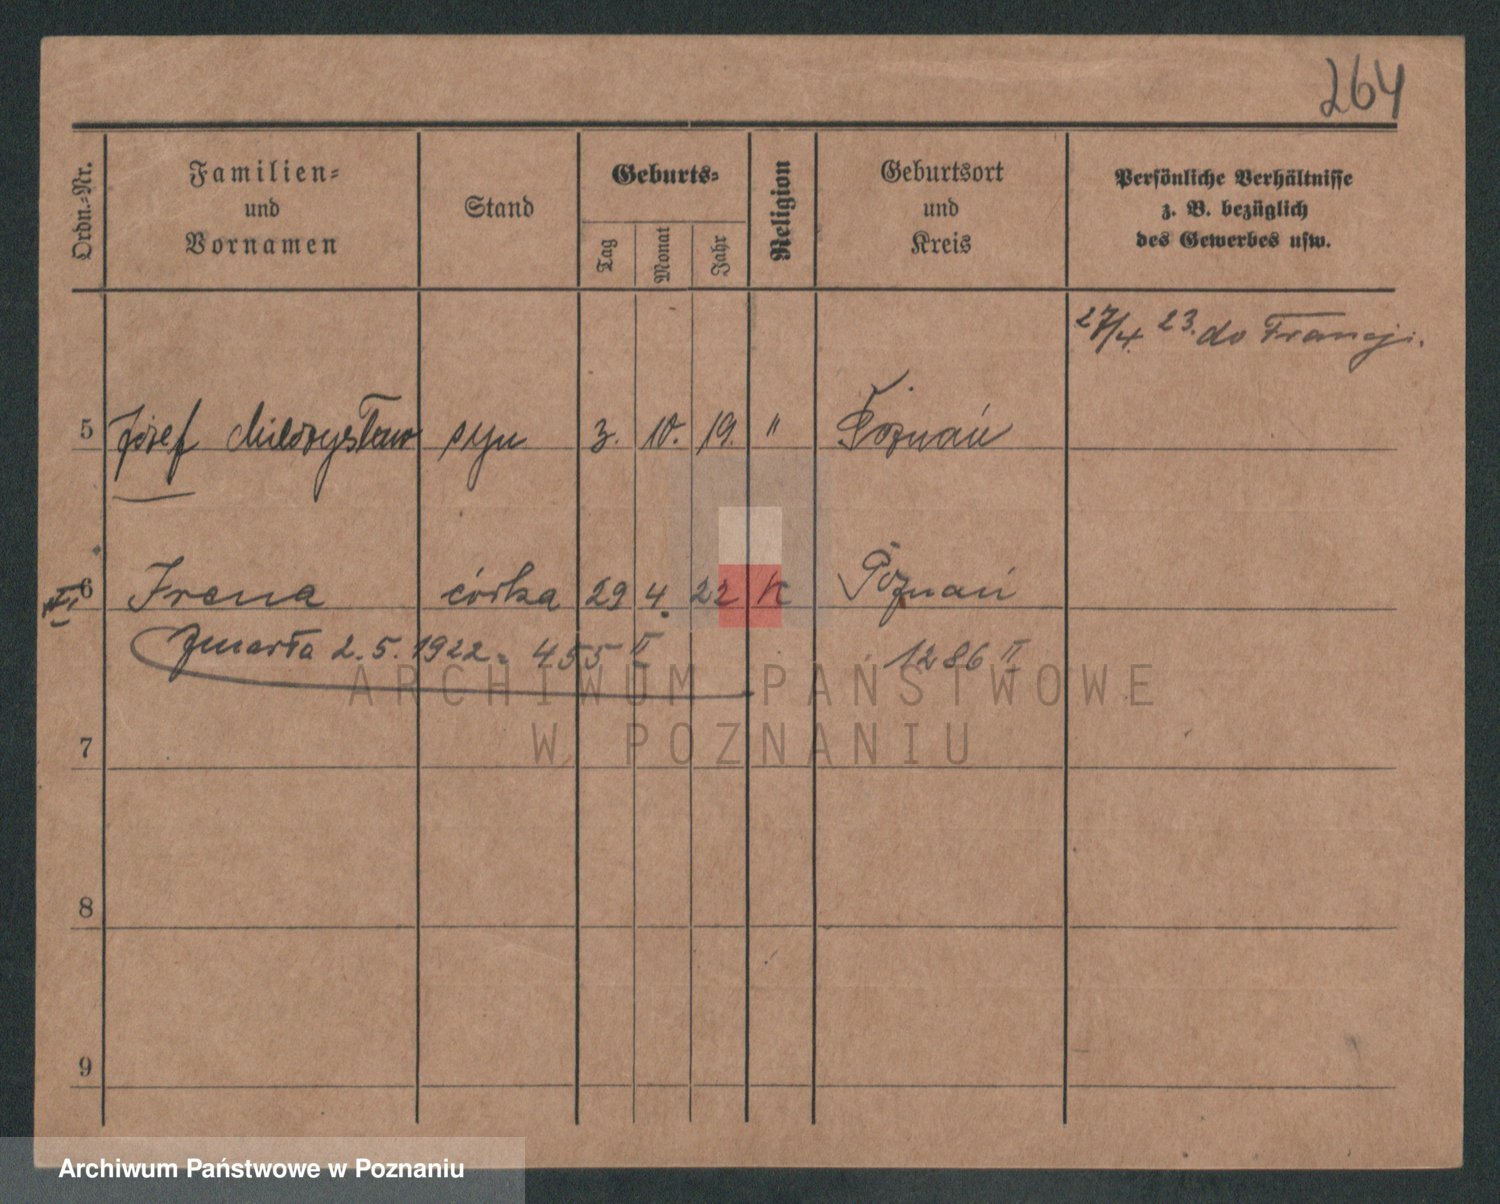 264
Ordn.-Nr.
Familien-
und
Vornamen
Stand
Geburts-
Tag
Monat
Jahr
Religion
Geburtsort
und
Kreis
Persönliche Verhältnisse
z. B. bezüglich
des Gewerbes usw.
27/4. 23. do Francji.
5 Józef Mieczysław syn 3. 10. 19. " Poznań
6 Irena córka 29 4. 22 K Poznań
Zmarła 2.5.1922. 455 II 1286 II
7
8
9
ARCHIWUM PAŃSTWOWE
W POZNANIU
Archiwum Państwowe w Poznaniu